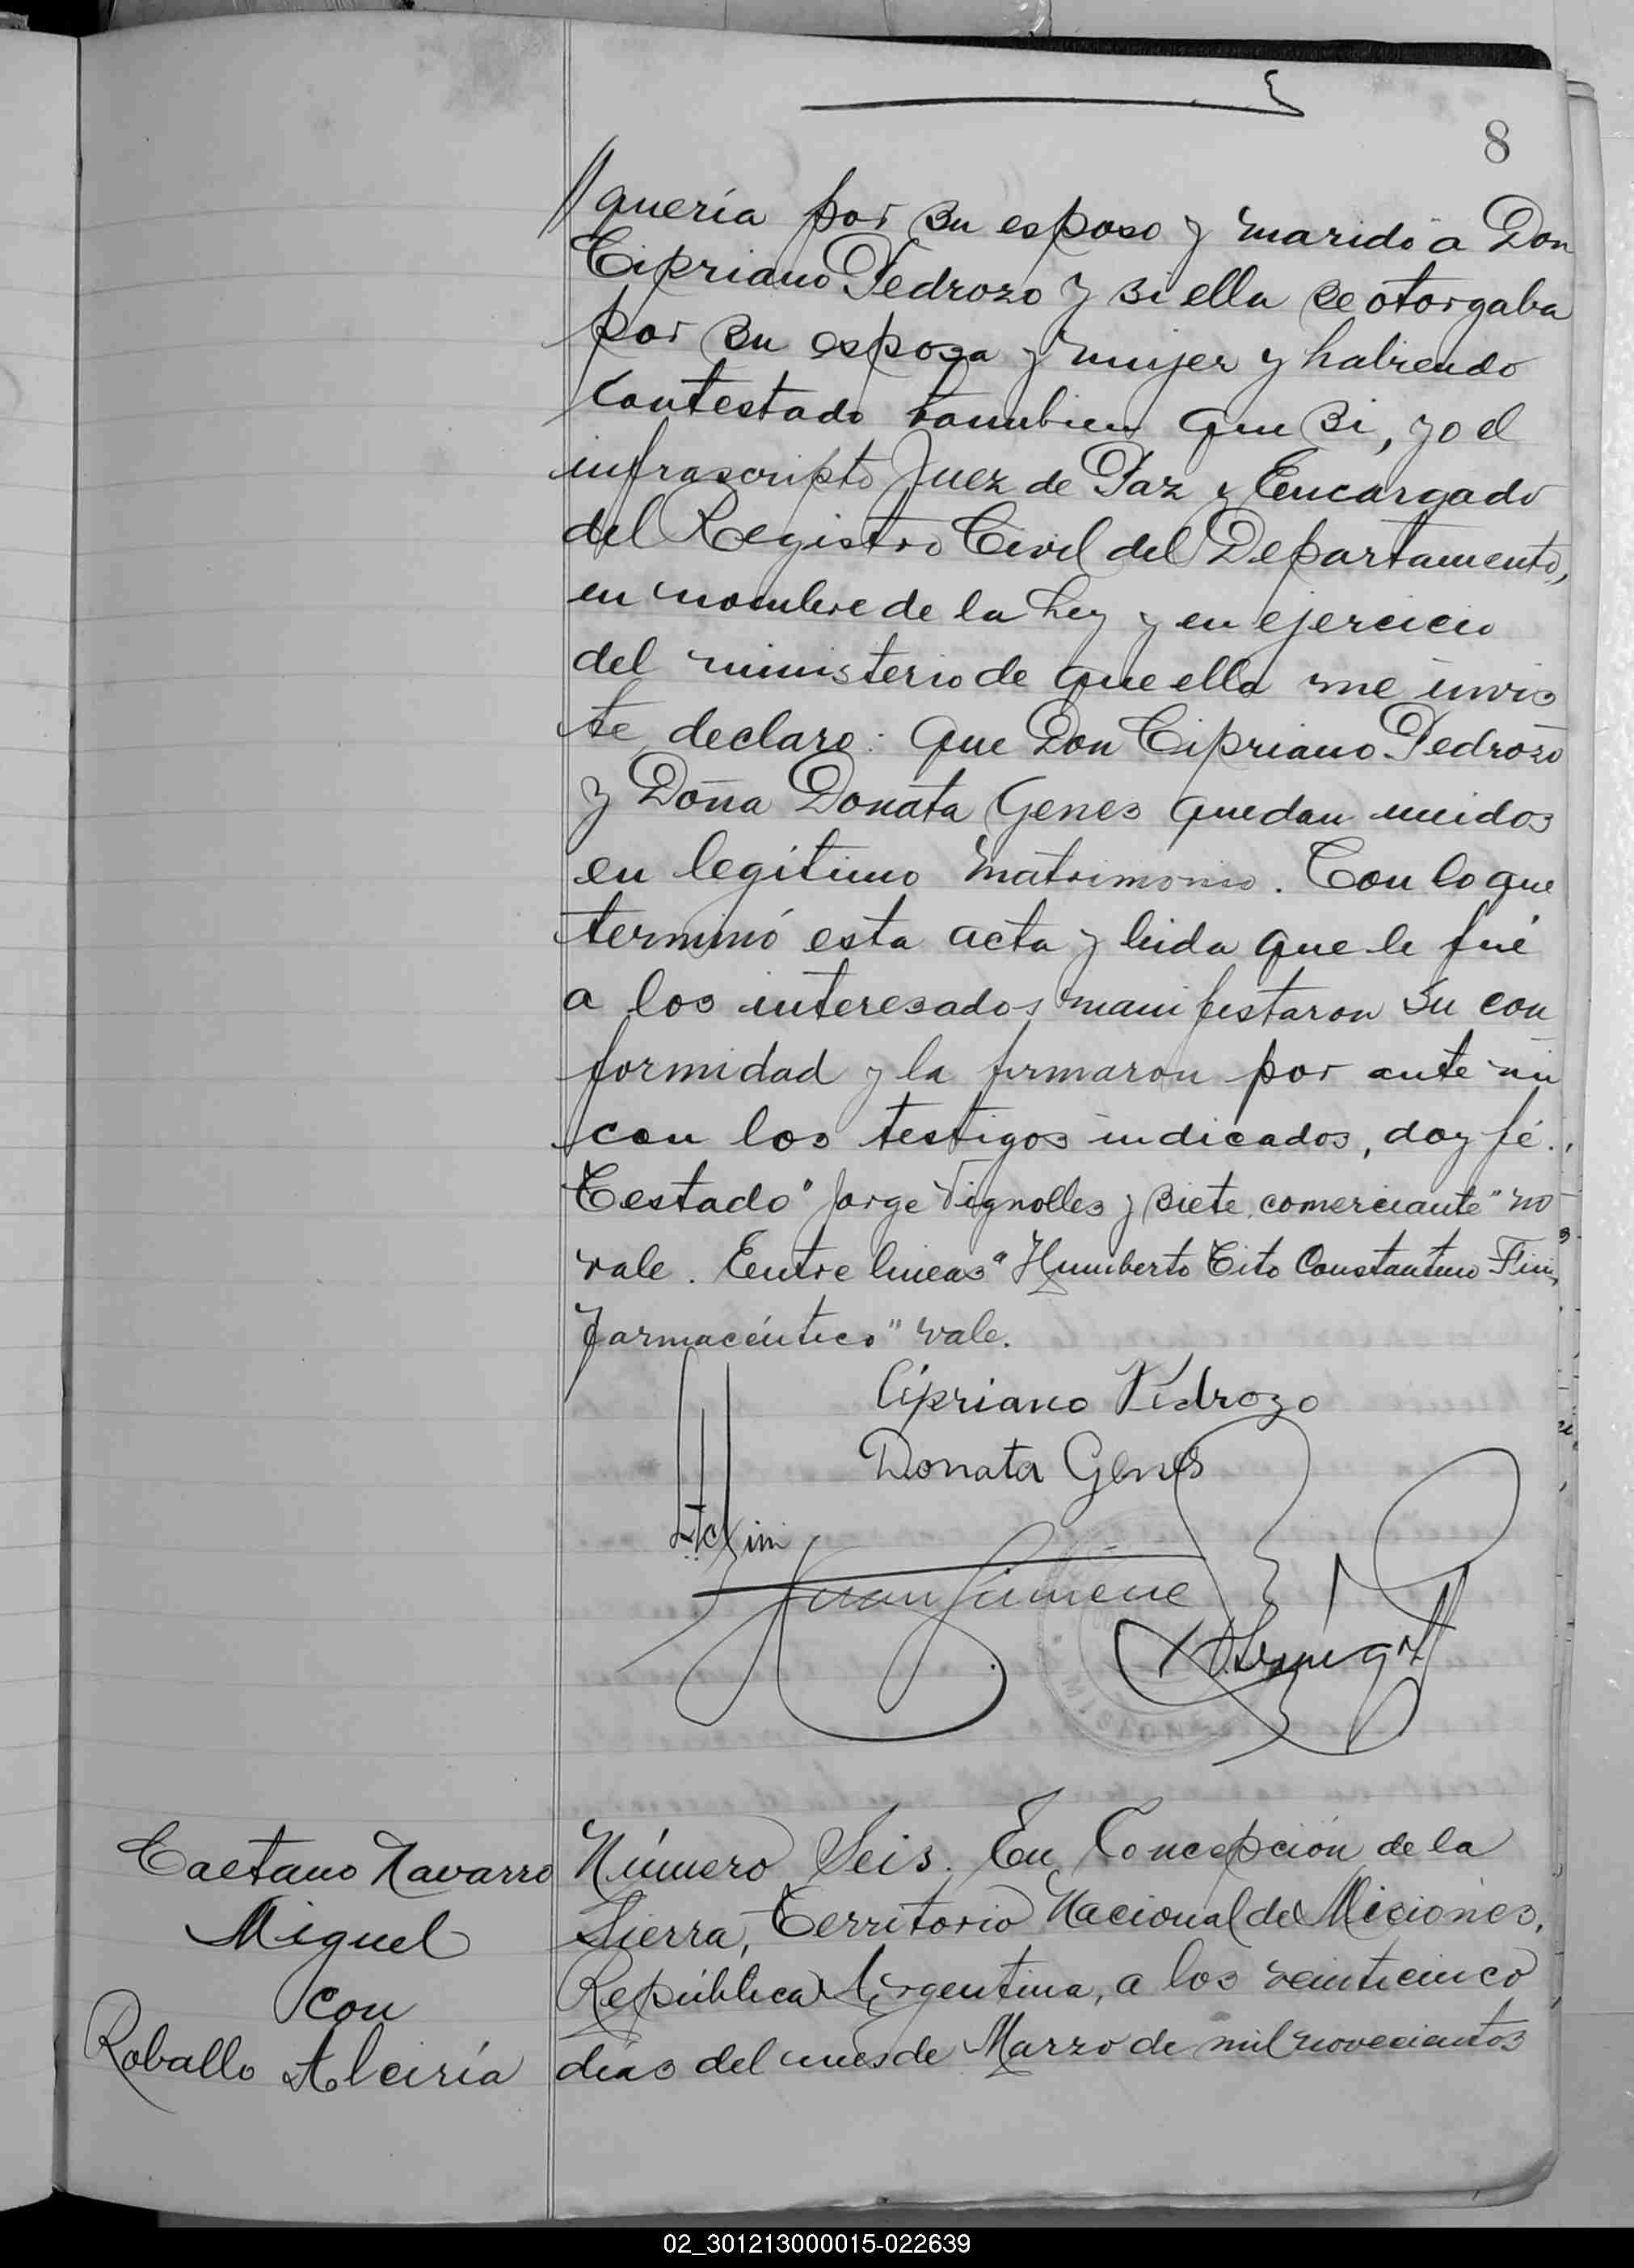 8
// quería por su esposo y marido a Don
Cipriano Pedrozo y si ella se otorgaba
por su esposa y mujer y habiendo
contestado tambien que si, yo el
infrascripto Juez de Paz y Encargado
del Registro Civil del Departamento,
en nombre de la Ley y en ejercicio
del ministerio de que ella me invis
te declaro: que Don Cipriano Pedrozo
y Doña Donata Genes quedan unidos
en legítimo matrimonio. Con lo que
terminó esta acta y leida que le fué
a los interesados manifestaron su con
formidad y la firmaron por ante mi
con los testigos indicados, doy fé.
Testado "Jorge Vignolles y siete, comerciante" no
vale. Entre lineas "Humberto Tito Constantino Fini,
farmacéutico" vale.
Cipriano Pedrozo
Donata Genes
Juan Jimene
MISIONES
Caetano Navarro
Miguel
con
Roballo Alciría
Número Seis. En Concepción de la
Sierra, Territorio Nacional de Misiones,
República Argentina, a los veinticinco
días del mes de Marzo de mil novecientos
02_301213000015-022639